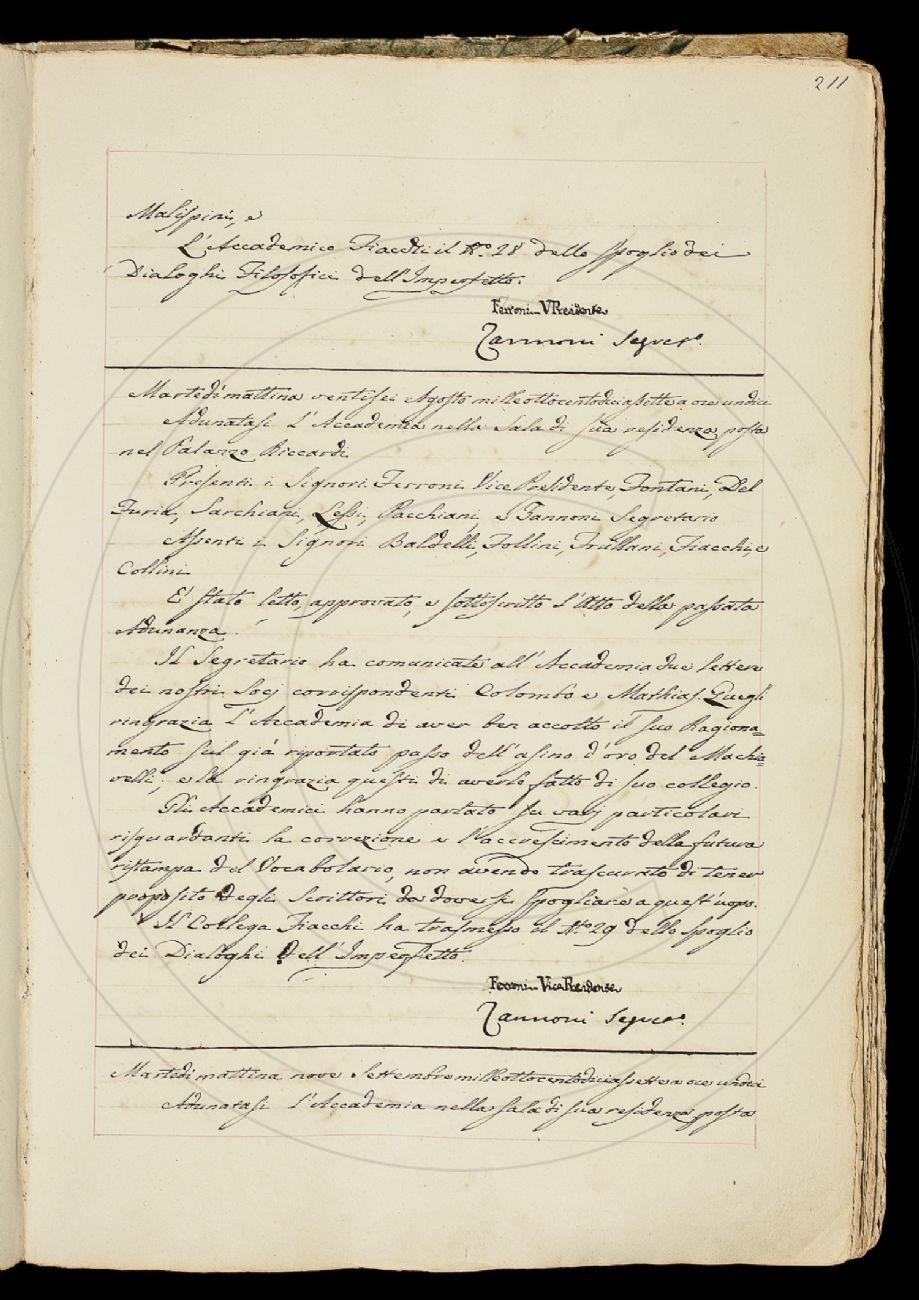 211
Malispini, e
L'Accademico Fiacchi il N.º 28 dello Spoglio dei
Dialoghi Filosofici dell'Imperfetto.
Ferroni VPresidente
Zannoni Segret.º
Martedì mattina ventisei Agosto milleottocentodiciassette a ore undici
Adunatasi l'Accademia nella Sala di sua residenza posta
nel Palazzo Riccardi
Presenti i Signori Ferroni Vice Presidente, Fontani, Del
Furia, Sarchiani, Lessi, Pacchiani, e Zannoni Segretario
Assenti i Signori Baldelli, Follini, Frullani, Fiacchi, e
Collini.
E' stato letto, approvato, e sottoscritto l'Atto della passata
Adunanza.
Il Segretario ha comunicate all'Accademia due lettere
dei nostri Socj corrispondenti Colombo e Mathias. Quegli
ringrazia l'Accademia di aver ben accolto il suo Ragiona=
mento sul già riportato passo dell'asino d'oro del Machia=
velli; e la ringrazia questi di averlo fatto di suo collegio.
Gli Accademici hanno parlato su varj particolari
risguardanti la correzione e l'accrescimento della futura
ristampa del Vocabolario, non avendo trascurato di tener
proposito degli Scrittori da doversi spogliare a quest'uopo.
Il Collega Fiacchi ha trasmesso il N.º 29 dello spoglio
dei Dialoghi dell'Imperfetto.
Ferroni Vice Presidente
Zannoni Segret.º
Martedì mattina nove Settembre milleottocentodiciassette a ore undici
Adunatasi l'Accademia nella sala di sua residenza posta